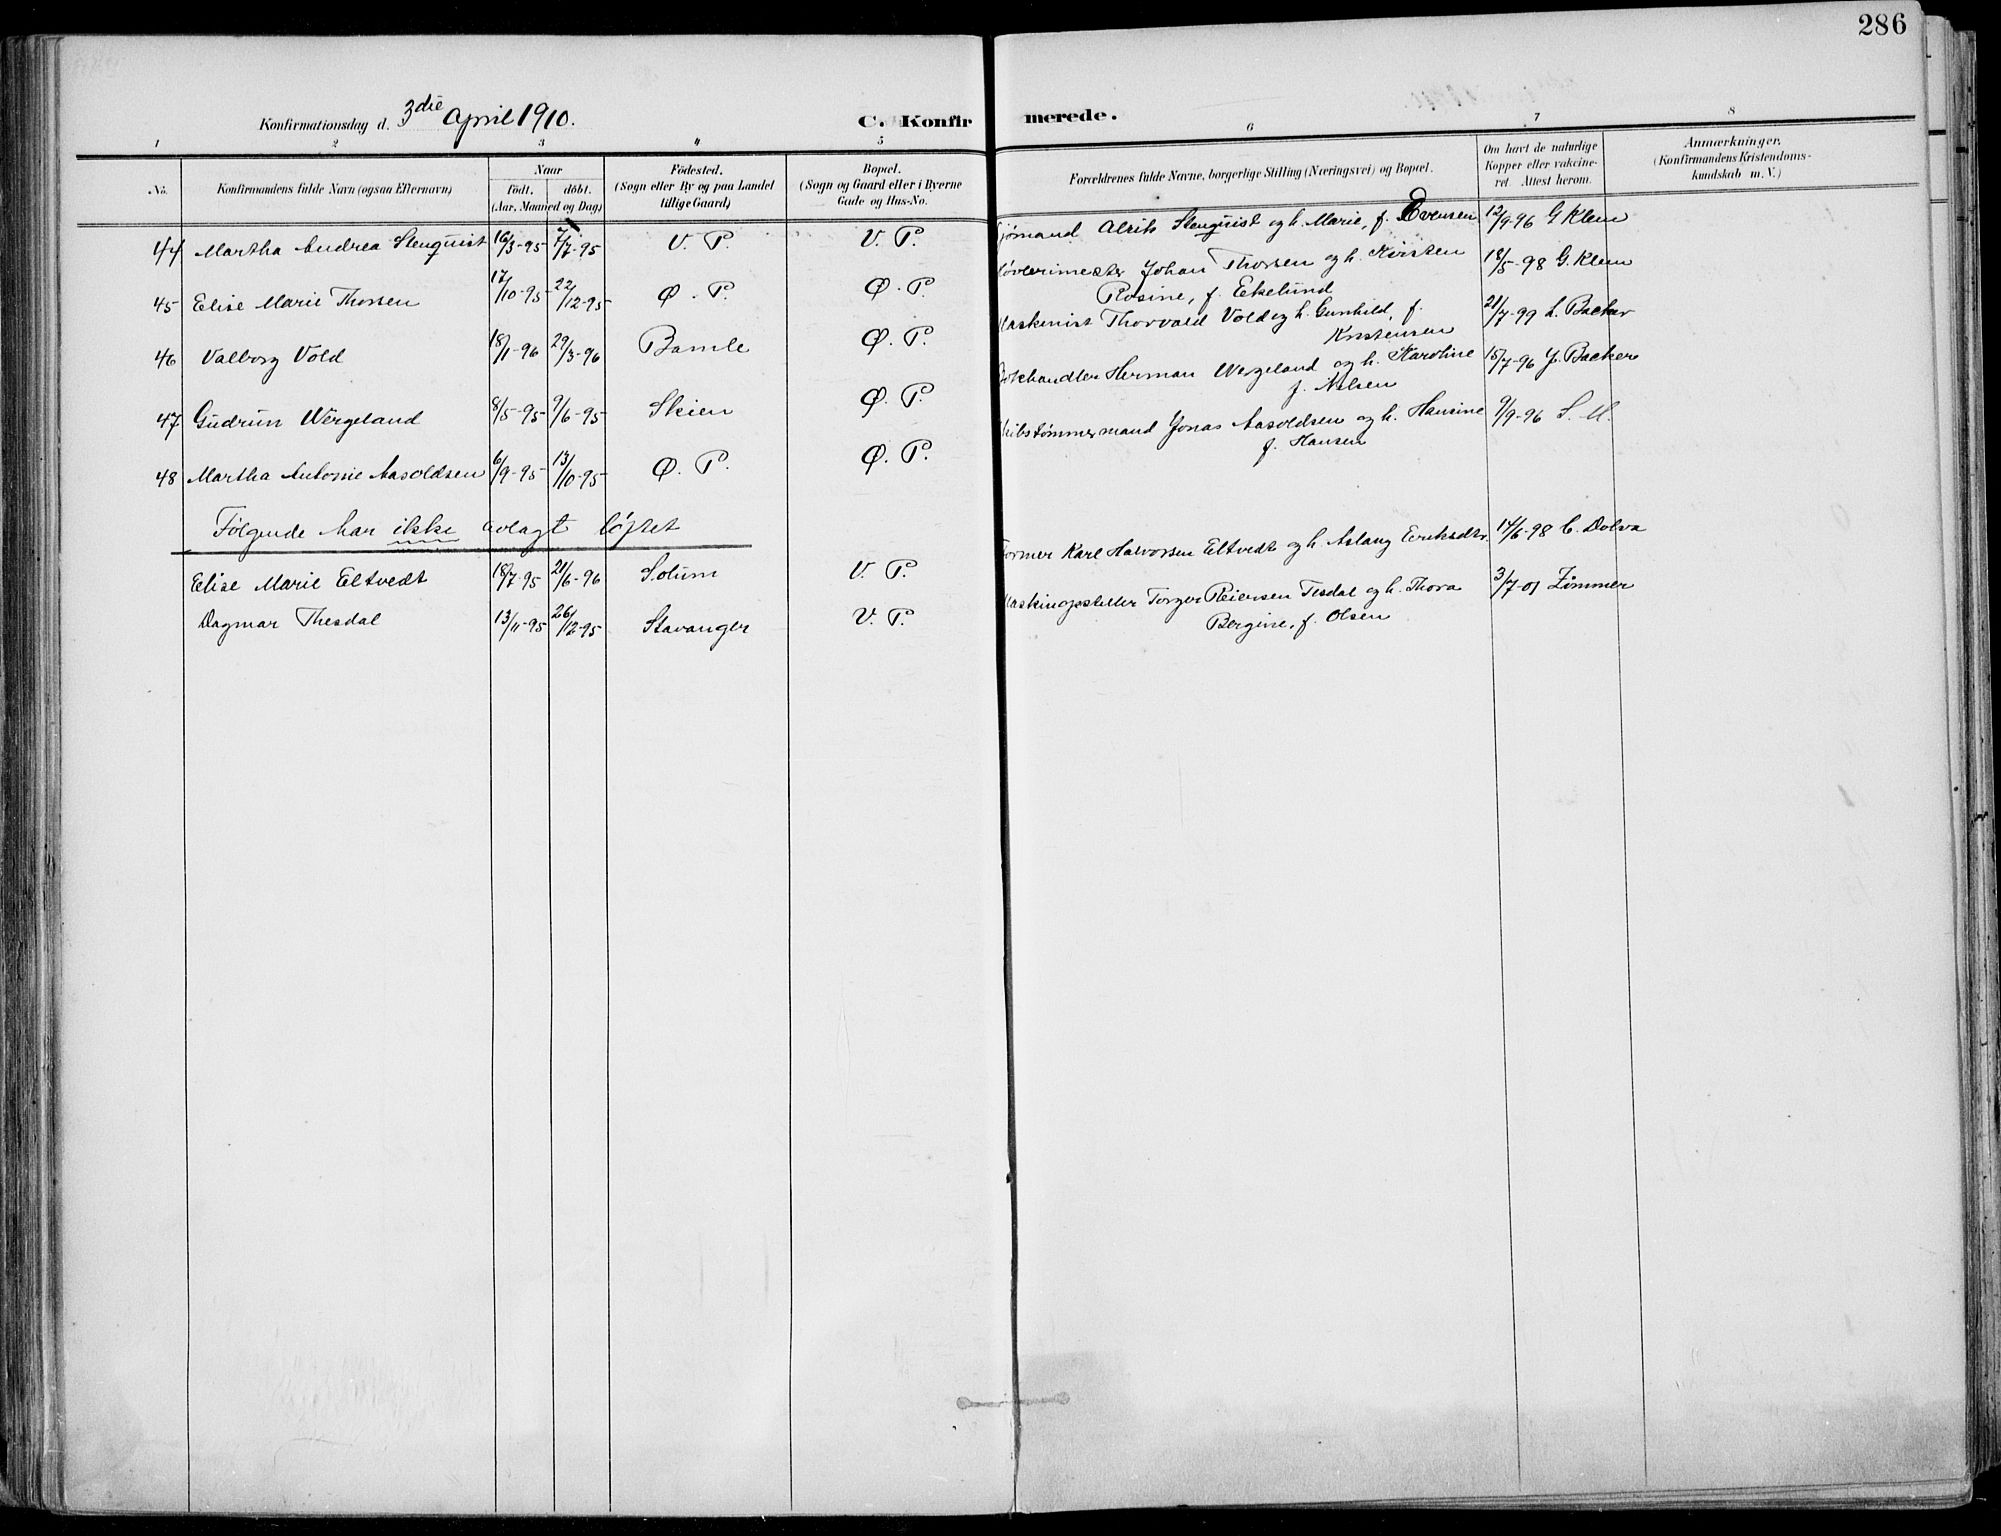 286
Konfirmationsdag d. 3die April 1910.
C. Konfir merede.
1 2 3 4 5 6 7 8
No.
Konfirmandens fulde Navn (ogsaa Efternavn)
Naar
födt. döbt.
(Aar, Maaned og Dag)
Födested.
(Sogn eller By og paa Landet
tillige Gaard)
Bopæl.
(Sogn og Gaard eller i Byerne
Gade og Hus-No.
Forældrenes fulde Navne, borgerlige Stilling (Næringsvei) og Bopæl.
Om havt de naturlige
Kopper eller vakcine-
ret. Attest herom.
Anmærkninger.
(Konfirmandens Kristendoms-
kundskab m. V.)
44 Martha Andrea Stenquist 16/3-95 7/7-95 V. P. V. P. jømand Alrik Stenquist og h. Marie, f. Evensen 12/9-96 G Klem
45 Elise Marie Thorsen 17/10-95 22/12-95 Ø. P. Ø. P. øvlerimester Johan Thorsen og h. Kirsten 18/5-98 G. Klem
Rosine, f. Ekelund
46 Valborg Vold 18/1-96 29/3-96 Bamle Ø. P. askinist Thorvald Vold og h. Gunhild, f. 21/7-99 L. Backer
Kristensen
47 Gudrun Wergeland 8/5-95 9/6-95 Skien Ø. P. okhandler Herman Wergeland og h. Karoline 15/7-96 J. Backer
f. Nilsen
48 Martha Antonie Aasoldsen 6/9-95 13/10-95 Ø. P. Ø. P. kibstømmermand Jonas Aasoldsen og h. Hansine 9/9-96 S. M.
f. Hansen
Følgende har ikke avlagt løftet
Elise Marie Eltvedt 18/7-95 21/6-96 Solum V. P. Former Karl Halvorsen Eltvedt og h. Aslaug Eriksdtr. 14/6-98 C. Dolva
Dagmar Thesdal 13/11-95 26/12-95 Stavanger V. P. askinopstiller Torger Reiersen Tesdal og h. Thora 3/7-01 Zimmer
Bergine, f. Olsen